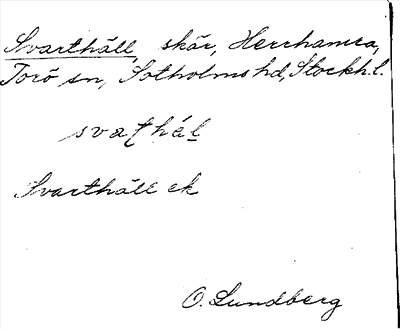 Svarthäll, skär, Herrhamra,
Torö sn, Sotholms hd, Stockh. l.
svaṭhál
Svarthäll ek
O. Lundberg